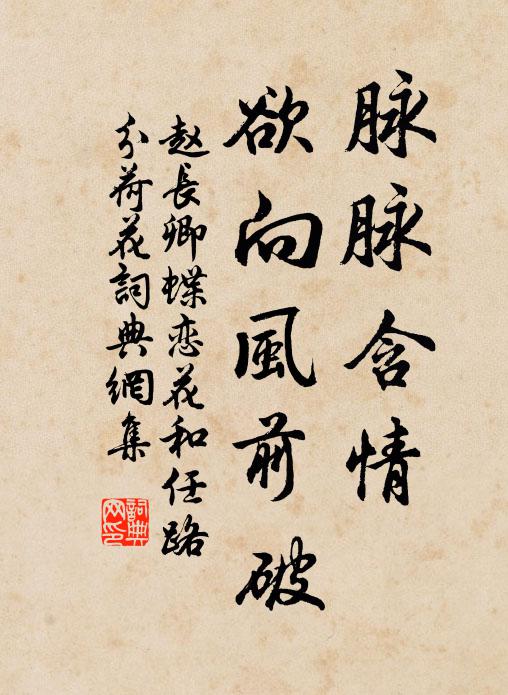 脉脉含情
欲向風前破
赵長卿蝶恋花和任路
分荷花詞典網集
詞典
网印